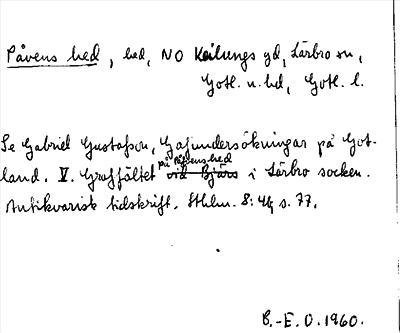 Påvens hed, hed, NO Kälungs gd, Lärbro sn,
Gotl. n. hd, Gotl. l.
Se Gabriel Gustafson, Grafundersökningar på Got-
land. V. Graffältet på Påfvens hed
vid Bjärs i Lärbro socken.
Antikvarisk tidskrift. Sthlm. 8: s. 77.
B.-E. O. 1960.